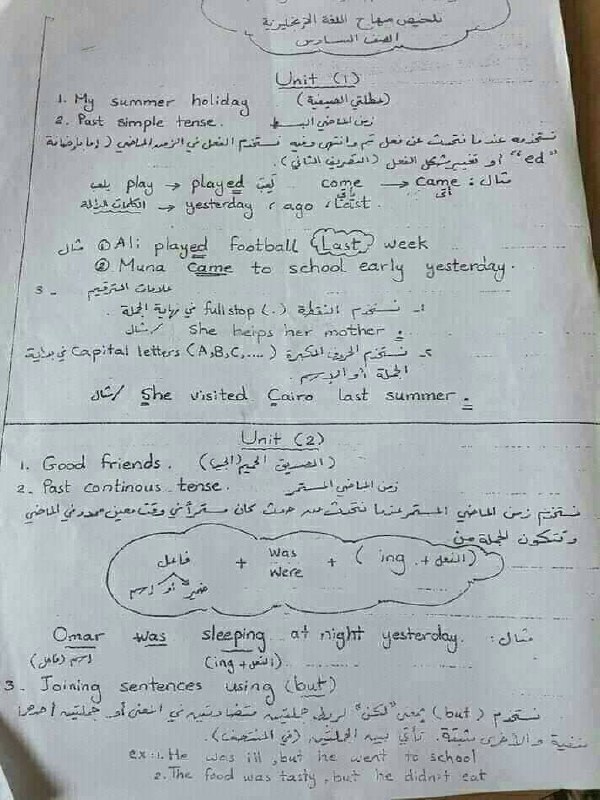 تلخيص منهاج اللغة الإنجليزية
الصف السادس
Unit (1)
1. My summer holiday (عطلتي الصيفية)
2. Past simple tense. زمن الماضي البسيط
نستخدمه عندما نتحدث عن فعل تم وانتهى وفيه نستخدم الفعل في الزمن الماضي (إما بإضافة
"ed" أو تغيير شكل الفعل (التصريف الثاني).
مثال: come يأتي → came أتى play يلعب → played لعب
الكلمات الدالة → yesterday , ago , Last.
مثال ① Ali played football Last week
② Muna came to school early yesterday.
3 - علامات الترقيم
1- نستخدم النقطة (.) full stop في نهاية الجملة.
مثال/ She helps her mother .
2- نستخدم الحروف الكبيرة capital letters (A,B,C,....) في بداية
الجملة أو الاسم.
مثال/ She visited Cairo last summer .
Unit (2)
1. Good friends. (الصديق الحميم)
2. Past continous tense. زمن الماضي المستمر
نستخدم زمن الماضي المستمر عندما نتحدث عن حدث كان مستمراً في وقت معين محدد في الماضي
وتتكون الجملة من
فاعل + was were + (الفعل + ing)
ضمير أو اسم
مثال: Omar was sleeping at night yesterday.
اسم (فاعل) (الفعل + ing)
3 - Joining sentences using (but)
نستخدم (but) بمعنى "لكن" لربط جملتين متضادتين في المعنى أو جملتين إحداهما
منفية والأخرى مثبتة. تأتي بين الجملتين (في المنتصف).
ex: 1. He was ill , but he went to school
2. The food was tasty , but he didn't eat